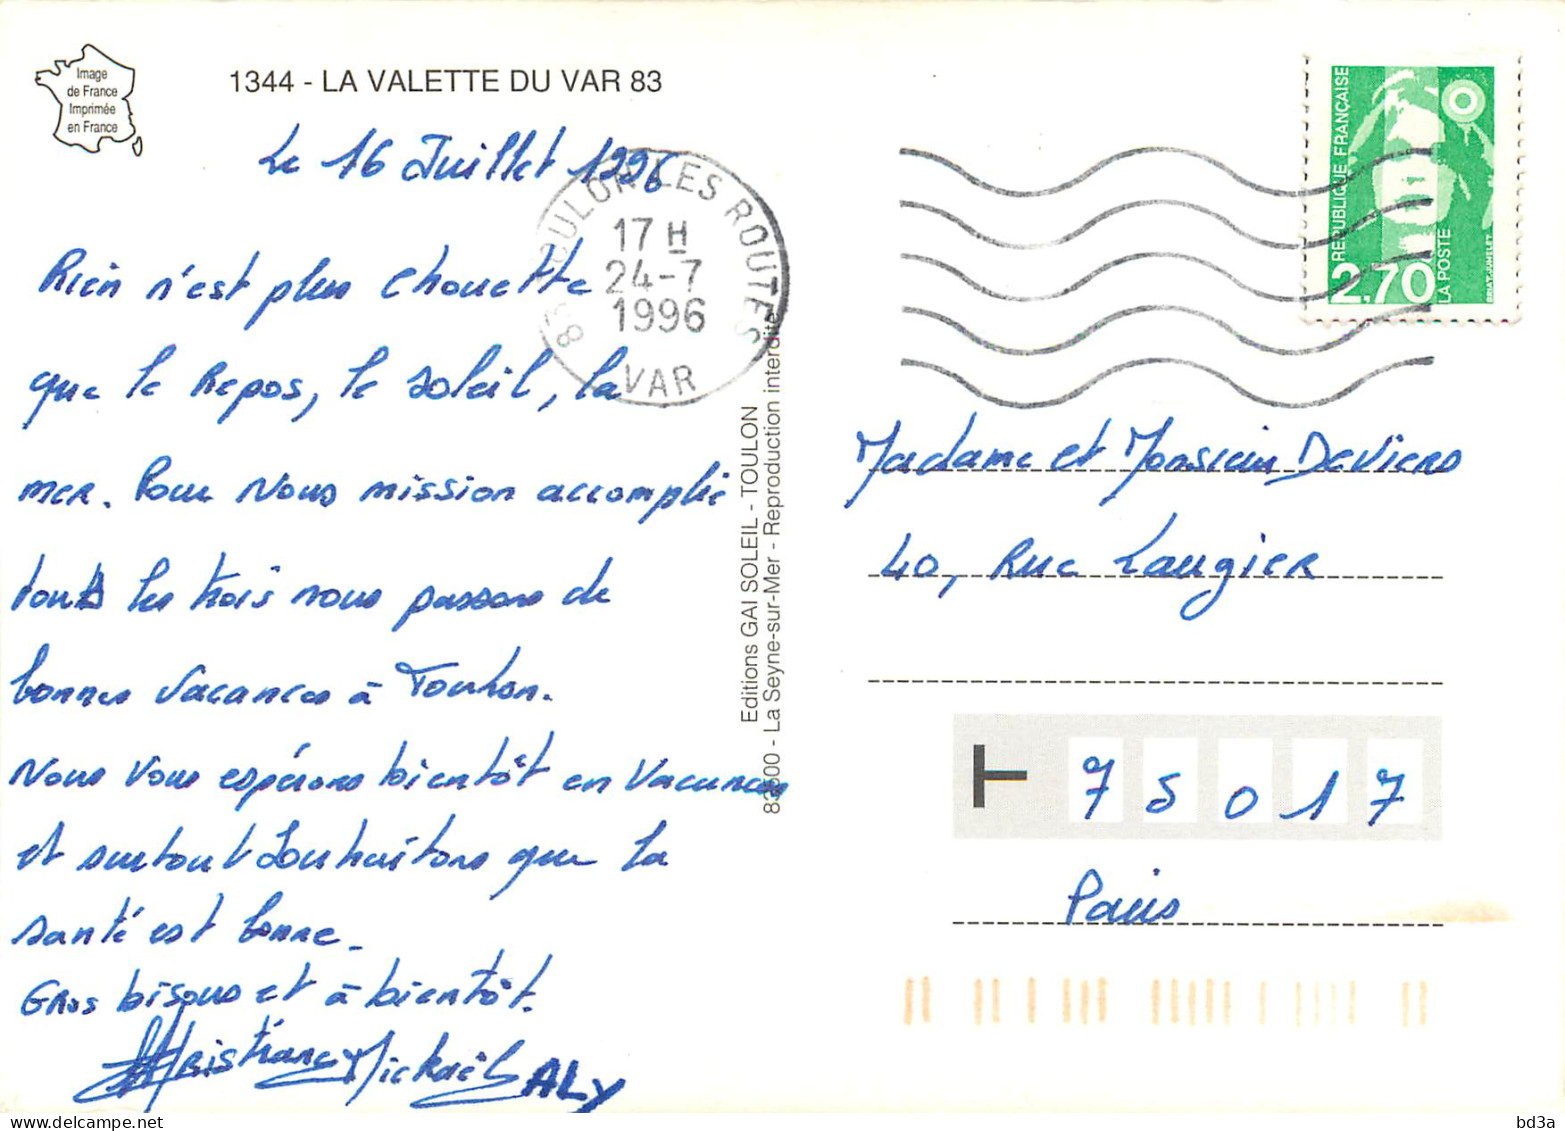 Image
de France
Imprimée
en France
1344 - LA VALETTE DU VAR 83
Le 16 Juillet 1996
Rien n'est plus chouette
que le Repos, le soleil, la
mer. Pour Nous mission accomplie
tous les trois nous passons de
bonnes vacances à Toulon.
Nous Vous espérons bientôt en Vacances
et surtout Souhaitons que la
santé est bonne.
Gros bisous et à bientôt.
Christiane Mickaël ALY
83 TOULON LES ROUTES
17 H
24-7
1996
VAR
Editions GAI SOLEIL - TOULON
83500 - La Seyne-sur-Mer - Reproduction interdite
REPUBLIQUE FRANÇAISE
2,70
LA POSTE
Madame et Monsieur Deviers
40, Rue Laugier
75017
Paris
bd3a